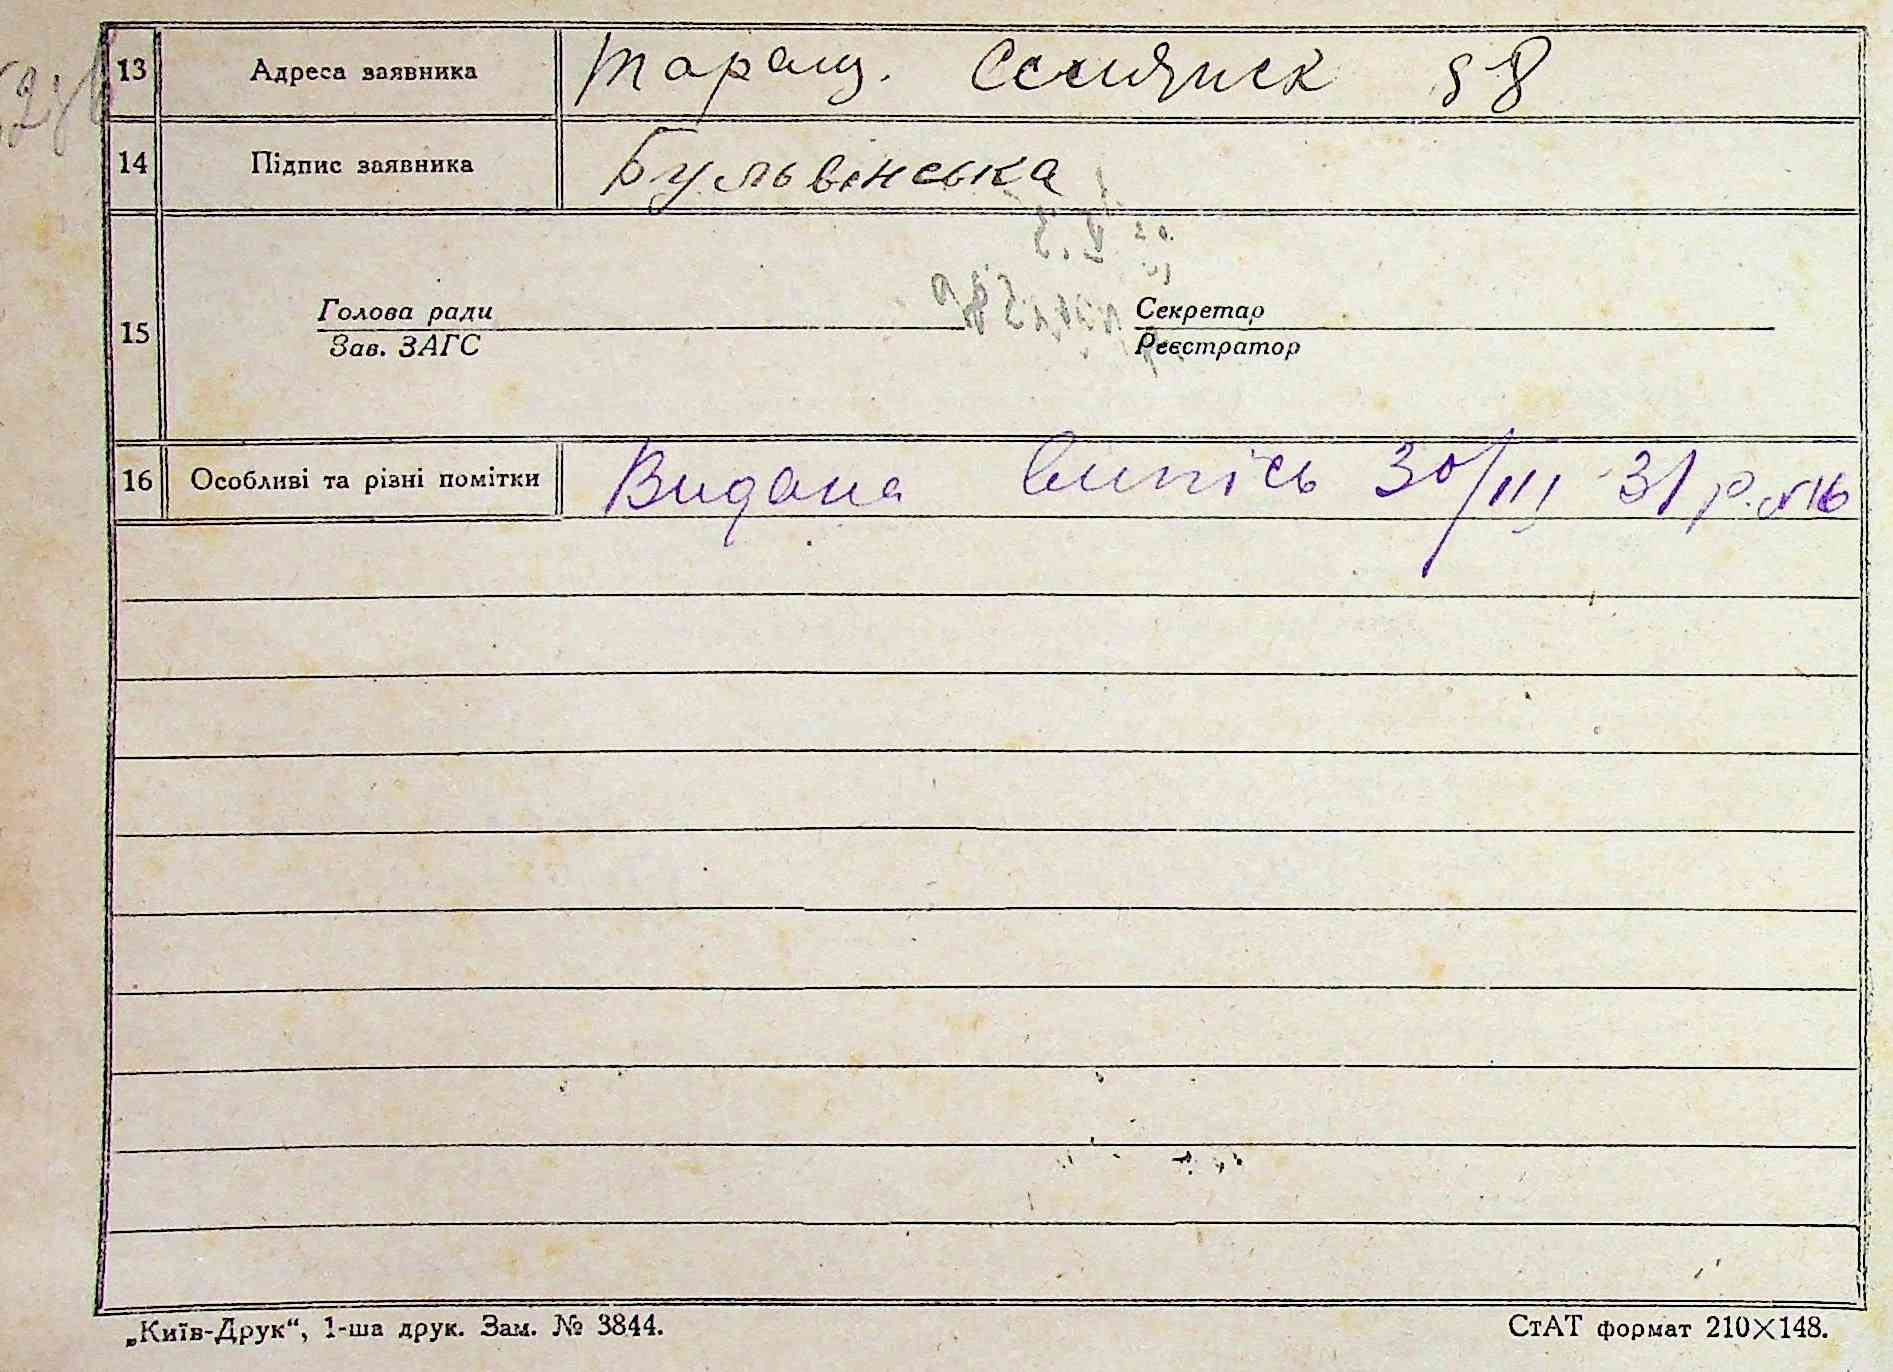 13 Адреса заявника Таращ. 88
14 Підпис заявника Бульвінська
15 Голова ради Секретар
Зав. ЗАГС Реєстратор
16 Особливі та різні помітки Видана випісь 30/III 31 р. №16
„Київ-Друк“, 1-ша друк. Зам. № 3844. СтАТ формат 210×148.